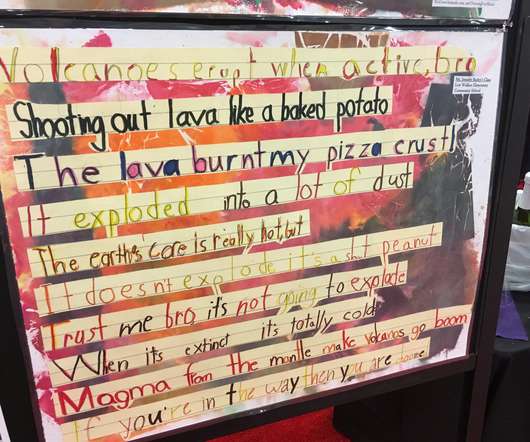 Volcanoes erupt when active, bro
Shooting out lava like a baked potato
The lava burnt my pizza crust!
It exploded into a lot of dust
The earth's core is really hot, but
It doesn't explode it's a shut peanut
Trust me bro, it's not going to explode
When its extinct it's totally cold!
Magma from the mantle make volcanos go boom
If you're in the way then you are
Community School